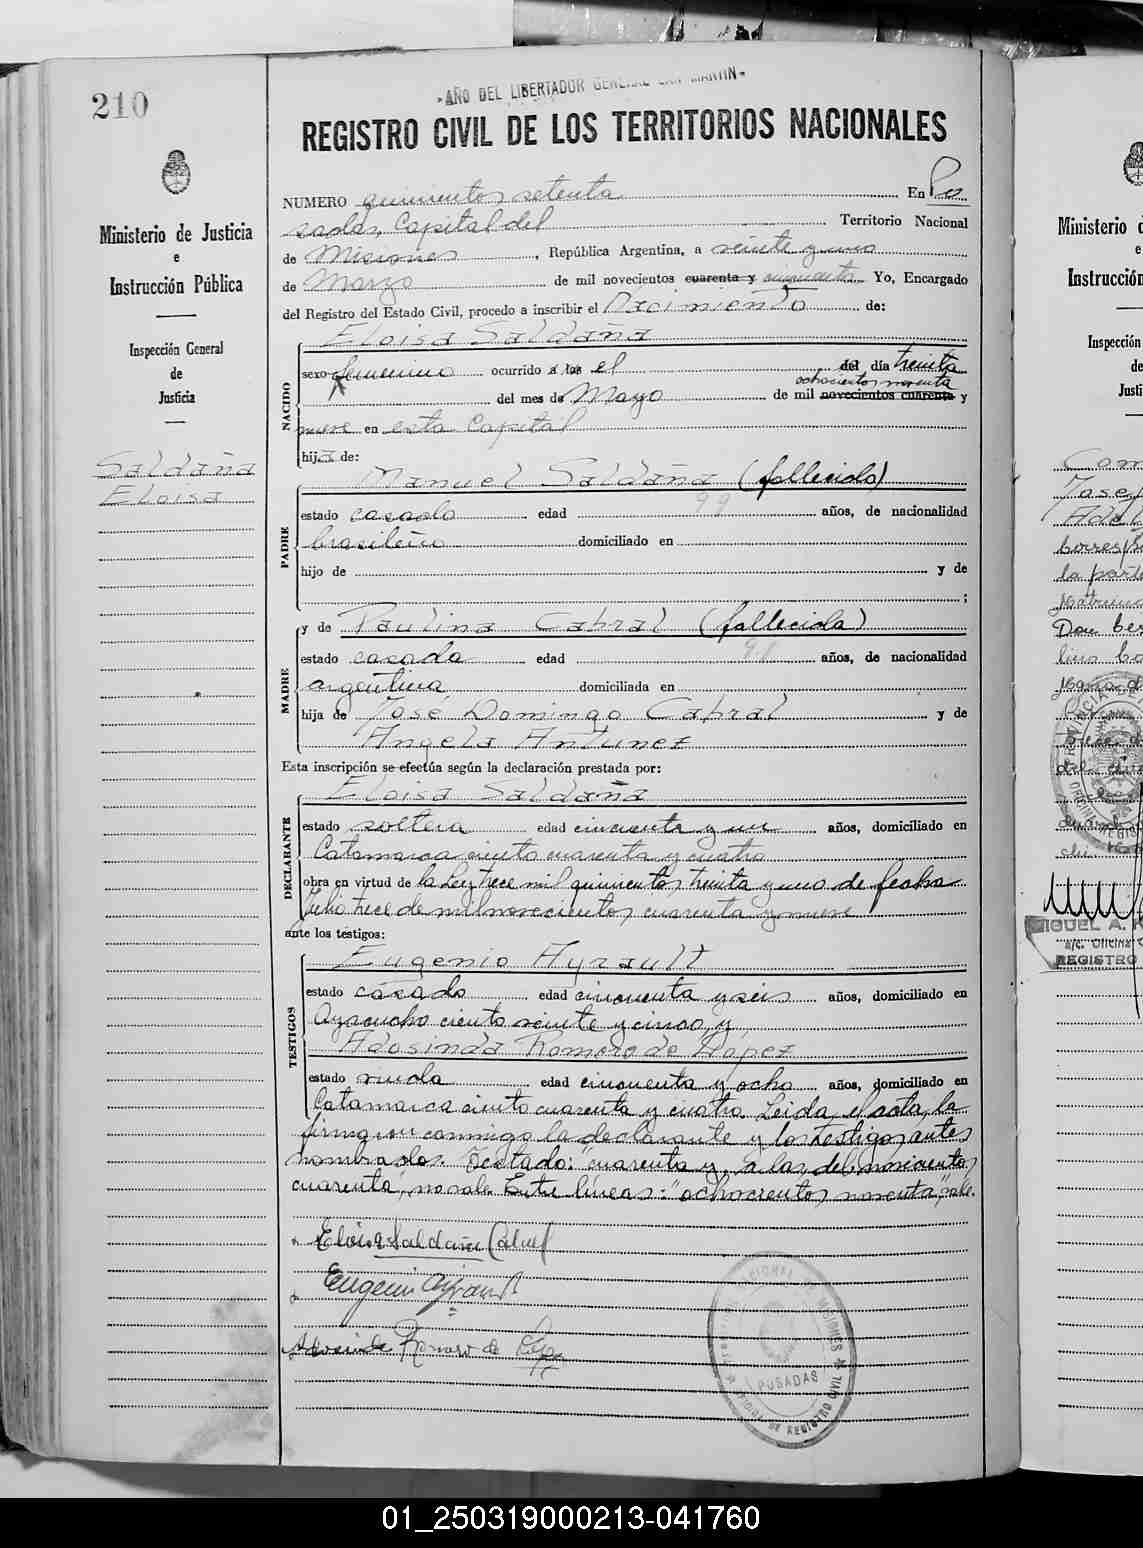 210
"AÑO DEL LIBERTADOR GENERAL SAN MARTIN"
REGISTRO CIVIL DE LOS TERRITORIOS NACIONALES
Ministerio de Justicia
e
Instrucción Pública
Inspección General
de
Justicia
Saldaña
Eloisa
NUMERO quinientos setenta En Po
sadas, Capital del Territorio Nacional
de Misiones, República Argentina, a veinte y uno
de Marzo de mil novecientos cuarenta y cincuenta Yo, Encargado
del Registro del Estado Civil, procedo a inscribir el Nacimiento de:
Eloisa Saldaña
NACIDO
sexo femenino ocurrido a las el del día treinta
ochocientos noventa
del mes de Mayo de mil novecientos cuarenta y
nueve en esta Capital
hija de:
PADRE
Manuel Saldaña (fallecido)
estado casado edad 99 años, de nacionalidad
brasileño domiciliado en
hijo de y de
;
MADRE
y de Paulina Cabral (fallecida)
estado casada edad años, de nacionalidad
argentina domiciliada en
hija de Jose Domingo Cabral y de
Angela Antunez
Esta inscripción se efectúa según la declaración prestada por:
DECLARANTE
Eloisa Saldaña
estado soltera edad cincuenta y un años, domiciliado en
Catamarca ciento cuarenta y cuatro
obra en virtud de la Ley trece mil quinientos treinta y uno de fecha
Julio trece de mil novecientos cuarenta y nueve
ante los testigos:
TESTIGOS
Eugenio Ayrault
estado casado edad cincuenta y seis años, domiciliado en
Ayacucho ciento veinte y cinco, y
Adosinda Romero de Lopez
estado viuda edad cincuenta y ocho años, domiciliado en
Catamarca ciento cuarenta y cuatro. Leida el acta, la
firmaron conmigo la declarante y los testigos antes
nombrados. Testado: "cuarenta y, a las, del novecientos
cuarenta", no vale. Entre líneas: "ochocientos noventa", vale.
Eloisa Saldaña Cabral
Eugenio Ayrault
Adosinda Romero de Lopez
POSADAS
Ministerio
e
Instrucción
Inspección
de
Justi
la parte
Don
MIGUEL A.
a/c. Oficina
REGISTRO
01_250319000213-041760